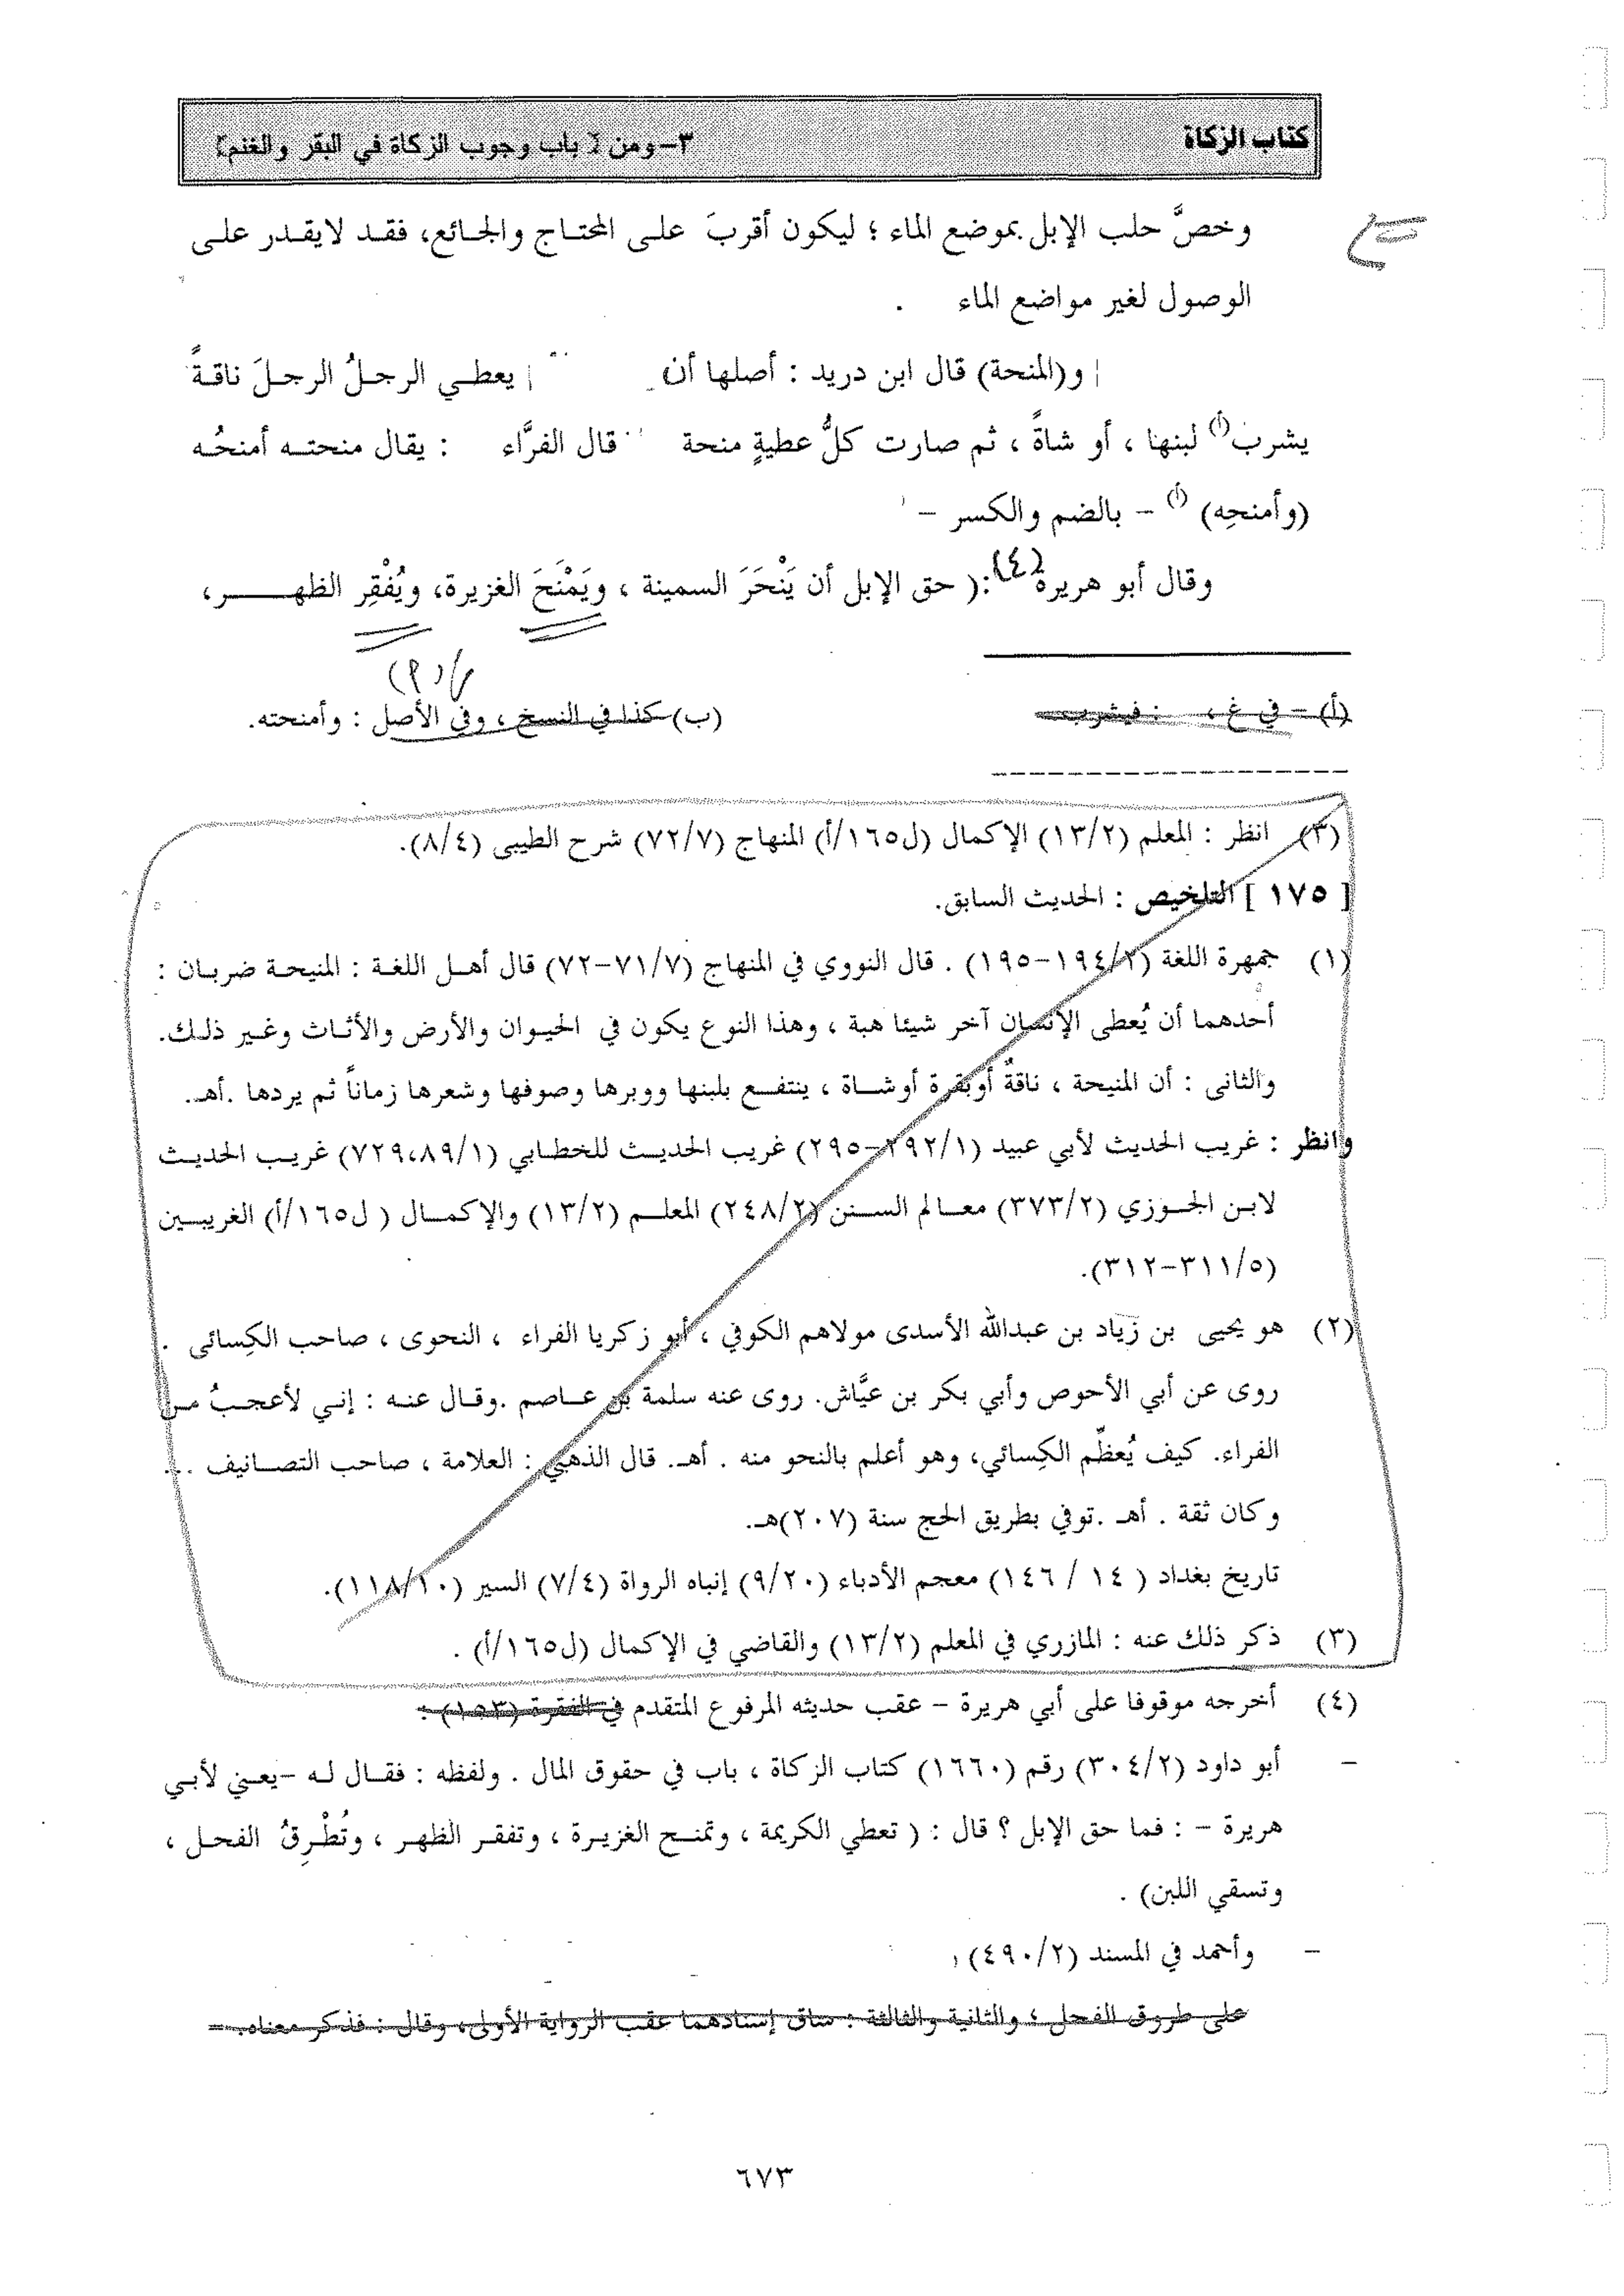 كتاب الزكاة
٣- ومن [ باب وجوب الزكاة في البقر والغنم]
وخصَّ حلب الإبل بموضع الماء ؛ ليكون أقربَ على المحتاج والجائع، فقد لايقدر على
الوصول لغير مواضع الماء .
و(المنحة) قال ابن دريد : أصلها أن يعطي الرجلُ الرجلَ ناقةً
يشرب(أ) لبنها ، أو شاةً ، ثم صارت كلُّ عطيةٍ منحة قال الفرَّاء : يقال منحته أمنحُه
(وأمنحِه) (أ) - بالضم والكسر -
وقال أبو هريرة(٤) :( حق الإبل أن يَنْحَرَ السمينة ، ويَمْنَحَ الغزيرة، ويُفْقِر الظهر،
(أ) - في غ ، : فيشرب.
(ب) كذا في النسخ ، وفي الأصل : وأمنحته.
(٣) انظر : المعلم (١٣/٢) الإكمال (ل١٦٥/أ) المنهاج (٧٢/٧) شرح الطيبى (٨/٤).
[ ١٧٥ ] التلخيص : الحديث السابق.
(١) جمهرة اللغة (١٩٤/٢-١٩٥) . قال النووي في المنهاج (٧١/٧-٧٢) قال أهل اللغة : المنيحة ضربان :
أحدهما أن يُعطى الإنسان آخر شيئا هبة ، وهذا النوع يكون في الحيوان والأرض والأثاث وغير ذلك.
والثانى : أن المنيحة ، ناقةٌ أوبقرة أوشاة ، ينتفع بلبنها ووبرها وصوفها وشعرها زماناً ثم يردها .أهـ.
وانظر : غريب الحديث لأبي عبيد (٢٩٢/١-٢٩٥) غريب الحديث للخطابي (٧٢٩،٨٩/١) غريب الحديث
لابن الجوزي (٣٧٣/٢) معالم السنن (٢٤٨/٢) المعلم (١٣/٢) والإكمال ( ل١٦٥/أ) الغريبين
(٣١١/٥-٣١٢).
(٢) هو يحيى بن زياد بن عبدالله الأسدى مولاهم الكوفي ، أبو زكريا الفراء ، النحوى ، صاحب الكِسائى .
روى عن أبي الأحوص وأبي بكر بن عيَّاش. روى عنه سلمة بن عاصم .وقال عنه : إني لأعجبُ من
الفراء. كيف يُعظِّم الكِسائي، وهو أعلم بالنحو منه . أهـ. قال الذهبي : العلامة ، صاحب التصانيف ...
وكان ثقة . أهـ .توفي بطريق الحج سنة (٢٠٧)هـ.
تاريخ بغداد ( ١٤ / ١٤٦) معجم الأدباء (٩/٢٠) إنباه الرواة (٧/٤) السير (١١٨/١٠).
(٣) ذكر ذلك عنه : المازري في المعلم (١٣/٢) والقاضي في الإكمال (ل١٦٥/أ) .
(٤) أخرجه موقوفا على أبي هريرة - عقب حديثه المرفوع المتقدم في الفقرة (١٥٣) :
- أبو داود (٣٠٤/٢) رقم (١٦٦٠) كتاب الزكاة ، باب في حقوق المال . ولفظه : فقال له -يعني لأبي
هريرة - : فما حق الإبل ؟ قال : ( تعطي الكريمة ، وتمنح الغزيرة ، وتفقر الظهر ، وتُطْرِقُ الفحل ،
وتسقي اللبن) .
- وأحمد في المسند (٤٩٠/٢)
على طروق الفحل ؛ والثانية والثالثة : ساق إسنادهما عقب الرواية الأولى، وقال : فذكر معناه. =
٦٧٣